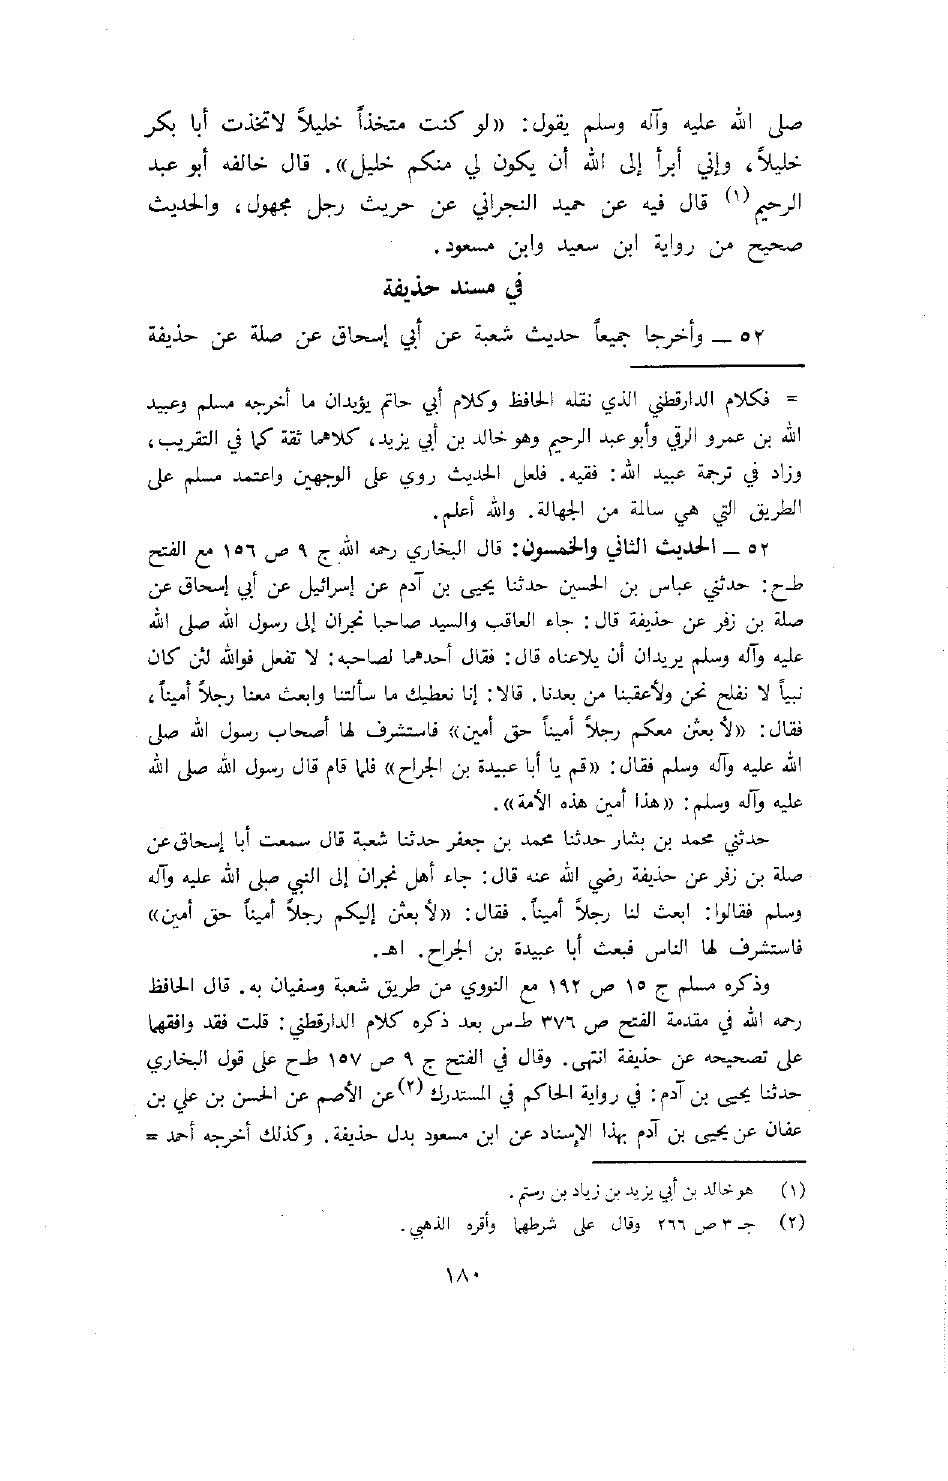 صلى الله عليه وآله وسلم يقول: «لو كنت متخذاً خليلاً لاتخذت أبا بكر
خليلاً، وإني أبرأ إلى الله أن يكون لي منكم خليل». قال خالفه أبو عبد
الرحيم (١) قال فيه عن حميد النجراني عن حريث رجل مجهول، والحديث
صحيح من رواية ابن سعيد وابن مسعود.
في مسند حذيفة
٥٢ ــ وأخرجا جميعاً حديث شعبة عن أبي إسحاق عن صلة عن حذيفة
= فكلام الدارقطني الذي نقله الحافظ وكلام أبي حاتم يؤيدان ما أخرجه مسلم وعبيد
الله بن عمرو الرقي وأبو عبد الرحيم وهو خالد بن أبي يزيد، كلاهما ثقة كما في التقريب،
وزاد في ترجمة عبيد الله: فقيه. فلعل الحديث روي على الوجهين واعتمد مسلم على
الطريق التي هي سالمة من الجهالة. والله أعلم.
٥٢ ــ الحديث الثاني والخمسون: قال البخاري رحمه الله ج ٩ ص ١٥٦ مع الفتح
ط ح: حدثني عباس بن الحسين حدثنا يحيى بن آدم عن إسرائيل عن أبي إسحاق عن
صلة بن زفر عن حذيفة قال: جاء العاقب والسيد صاحبا نجران إلى رسول الله صلى الله
عليه وآله وسلم يريدان أن يلاعناه قال: فقال أحدهما لصاحبه: لا تفعل فوالله لئن كان
نبياً لا نفلح نحن ولأعقبنا من بعدنا. قالا: إنا نعطيك ما سألتنا وابعث معنا رجلاً أميناً،
فقال: «لأ بعثن معكم رجلاً أميناً حق أمين» فاستشرف لها أصحاب رسول الله صلى
الله عليه وآله وسلم فقال: «قم يا أبا عبيدة بن الجراح» فلما قام قال رسول الله صلى الله
عليه وآله وسلم: «هذا أمين هذه الأمة».
حدثني محمد بن بشار حدثنا محمد بن جعفر حدثنا شعبة قال سمعت أبا إسحاق عن
صلة بن زفر عن حذيفة رضي الله عنه قال: جاء أهل نجران إلى النبي صلى الله عليه وآله
وسلم فقالوا: ابعث لنا رجلاً أميناً. فقال: «لأ بعثن إليكم رجلاً أميناً حق أمين»
فاستشرف لها الناس فبعث أبا عبيدة بن الجراح. اهـ.
وذكره مسلم ج ١٥ ص ١٩٢ مع النووي من طريق شعبة وسفيان به. قال الحافظ
رحمه الله في مقدمة الفتح ص ٣٧٦ ط س بعد ذكره كلام الدارقطني: قلت فقد وافقهما
على تصحيحه عن حذيفة انتهى. وقال في الفتح ج ٩ ص ١٥٧ ط ح على قول البخاري
حدثنا يحيى بن آدم: في رواية الحاكم في المستدرك (٢) عن الأصم عن الحسن بن علي بن
عفان عن يحيى بن آدم بهذا الإسناد عن ابن مسعود بدل حذيفة. وكذلك أخرجه أحمد =
(١) هو خالد بن أبي يزيد بن زياد بن رستم.
(٢) جـ ٣ ص ٢٦٦ وقال على شرطهما وأقره الذهبي.
١٨٠